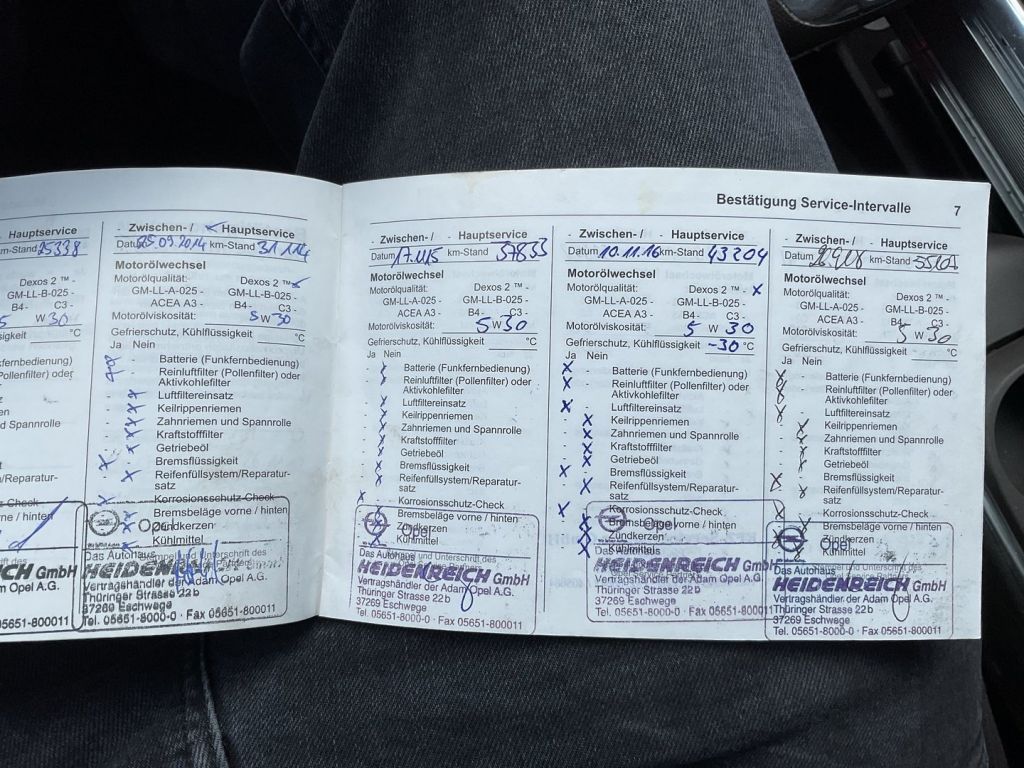 Bestätigung Service-Intervalle 7
Hauptservice
m-Stand 25338
W 30
sigkeit °C
nbedienung)
Pollenfilter) oder
en
nd Spannrolle
m/Reparatur-
Korrosionsschutz-Check
orne / hinten
ICH GmbH
m Opel A.G.
1-800011
- Zwischen- / Hauptservice
Datum 25.09.2014 km-Stand 31 114
Motorölwechsel
Motorölqualität: Dexos 2 ™ -
GM-LL-A-025 - GM-LL-B-025 -
ACEA A3 - B4- C3 -
Motorölviskosität: 5 W 30
Gefrierschutz, Kühlflüssigkeit °C
Ja Nein
Batterie (Funkfernbedienung)
Reinluftfilter (Pollenfilter) oder
Aktivkohlefilter
Luftfiltereinsatz
Keilrippenriemen
Zahnriemen und Spannrolle
Kraftstofffilter
Getriebeöl
Bremsflüssigkeit
Reifenfüllsystem/Reparatur-
satz
Korrosionsschutz-Check
Bremsbeläge vorne / hinten
Zündkerzen
Kühlmittel
Opel
Das Autohaus
HEIDENREICH GmbH
Vertragshändler der Adam Opel A.G.
Thüringer Strasse 22b
37269 Eschwege
Tel. 05651-8000-0 · Fax 05651-800011
- Zwischen- / - Hauptservice
Datum km-Stand 37833
Motorölwechsel
Motorölqualität: Dexos 2 ™ -
GM-LL-A-025 - GM-LL-B-025 -
ACEA A3 - B4- C3 -
Motorölviskosität: 5 W 30
Gefrierschutz, Kühlflüssigkeit °C
Ja Nein
Batterie (Funkfernbedienung)
Reinluftfilter (Pollenfilter) oder
Aktivkohlefilter
Luftfiltereinsatz
Keilrippenriemen
Zahnriemen und Spannrolle
Kraftstofffilter
Getriebeöl
Bremsflüssigkeit
Reifenfüllsystem/Reparatur-
satz
Korrosionsschutz-Check
Bremsbeläge vorne / hinten
Zündkerzen
Kühlmittel
Opel
Das Autohaus
HEIDENREICH GmbH
Vertragshändler der Adam Opel A.G.
Thüringer Strasse 22b
37269 Eschwege
Tel. 05651-8000-0 · Fax 05651-800011
- Zwischen- / - Hauptservice
Datum 10.11.16 km-Stand 43204
Motorölwechsel
Motorölqualität: Dexos 2 ™ - x
GM-LL-A-025 - GM-LL-B-025 -
ACEA A3 - B4- C3 -
Motorölviskosität: 5 W 30
Gefrierschutz, Kühlflüssigkeit -30 °C
Ja Nein
Batterie (Funkfernbedienung)
Reinluftfilter (Pollenfilter) oder
Aktivkohlefilter
Luftfiltereinsatz
Keilrippenriemen
Zahnriemen und Spannrolle
Kraftstofffilter
Getriebeöl
Bremsflüssigkeit
Reifenfüllsystem/Reparatur-
satz
Korrosionsschutz-Check
Bremsbeläge vorne / hinten
Zündkerzen
Kühlmittel
Opel
Das Autohaus
HEIDENREICH GmbH
Vertragshändler der Adam Opel A.G.
Thüringer Strasse 22b
37269 Eschwege
Tel. 05651-8000-0 · Fax 05651-800011
- Zwischen- / - Hauptservice
Datum km-Stand
Motorölwechsel
Motorölqualität: Dexos 2 ™ -
GM-LL-A-025 - GM-LL-B-025 -
ACEA A3 - B4- C3 -
Motorölviskosität: 5 W 30
Gefrierschutz, Kühlflüssigkeit °C
Ja Nein
Batterie (Funkfernbedienung)
Reinluftfilter (Pollenfilter) oder
Aktivkohlefilter
Luftfiltereinsatz
Keilrippenriemen
Zahnriemen und Spannrolle
Kraftstofffilter
Getriebeöl
Bremsflüssigkeit
Reifenfüllsystem/Reparatur-
satz
Korrosionsschutz-Check
Bremsbeläge vorne / hinten
Zündkerzen
Kühlmittel
Opel
Das Autohaus
HEIDENREICH GmbH
Vertragshändler der Adam Opel A.G.
Thüringer Strasse 22b
37269 Eschwege
Tel. 05651-8000-0 · Fax 05651-800011